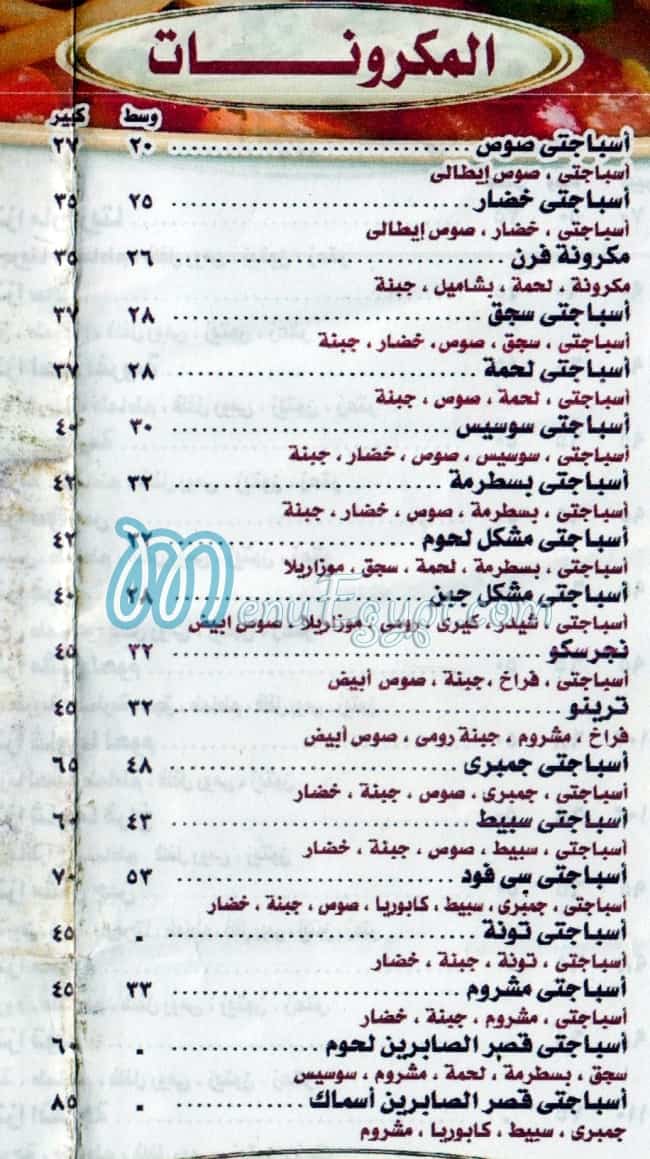 المكرونـــات
وسط كبير
أسباجتى صوص ٢٠ ٢٧
أسباجتى ، صوص إيطالى
أسباجتى خضار ٢٥ ٣٥
أسباجتى ، خضار ، صوص إيطالى
مكرونة فرن ٢٦ ٣٥
مكرونة ، لحمة ، بشاميل ، جبنة
أسباجتى سجق ٢٨ ٣٧
أسباجتى ، سجق ، صوص ، خضار ، جبنة
أسباجتى لحمة ٢٨
أسباجتى ، لحمة ، صوص ، جبنة
أسباجتى سوسيس ٣٠ ٤٠
أسباجتى ، سوسيس ، صوص ، خضار ، جبنة
أسباجتى بسطرمة ٣٢ ٤٢
أسباجتى ، بسطرمة ، صوص ، خضار ، جبنة
أسباجتى مشكل لحوم ٤٢
أسباجتى ، بسطرمة ، لحمة ، سجق ، موزاريلا
أسباجتى مشكل جبن ٢٨ ٤٠
أسباجتى ، شيدر ، كيرى ، رومى ، موزاريلا ، صوس ابيض
MenuEgypt.com
نجرسكو ٣٢ ٤٥
أسباجتى ، فراخ ، جبنة ، صوص أبيض
ترينو ٣٢ ٤٥
فراخ ، مشروم ، جبنة رومى ، صوص أبيض
أسباجتى جمبرى ٤٨ ٦٥
أسباجتى ، جمبرى ، صوص ، جبنة ، خضار
أسباجتى سبيط ٤٣ ٦٠
أسباجتى ، سبيط ، صوص ، جبنة ، خضار
أسباجتى سى فود ٥٣ ٧٠
أسباجتى ، جمبرى ، سبيط ، كابوريا ، صوص ، جبنة ، خضار
أسباجتى تونة . ٤٥
أسباجتى ، تونة ، جبنة ، خضار
أسباجتى مشروم ٣٣ ٤٥
أسباجتى ، مشروم ، جبنة ، خضار
أسباجتى قصر الصابرين لحوم . ٦٠
سجق ، بسطرمة ، لحمة ، مشروم ، سوسيس
أسباجتى قصر الصابرين أسماك . ٨٥
جمبرى ، سبيط ، كابوريا ، مشروم